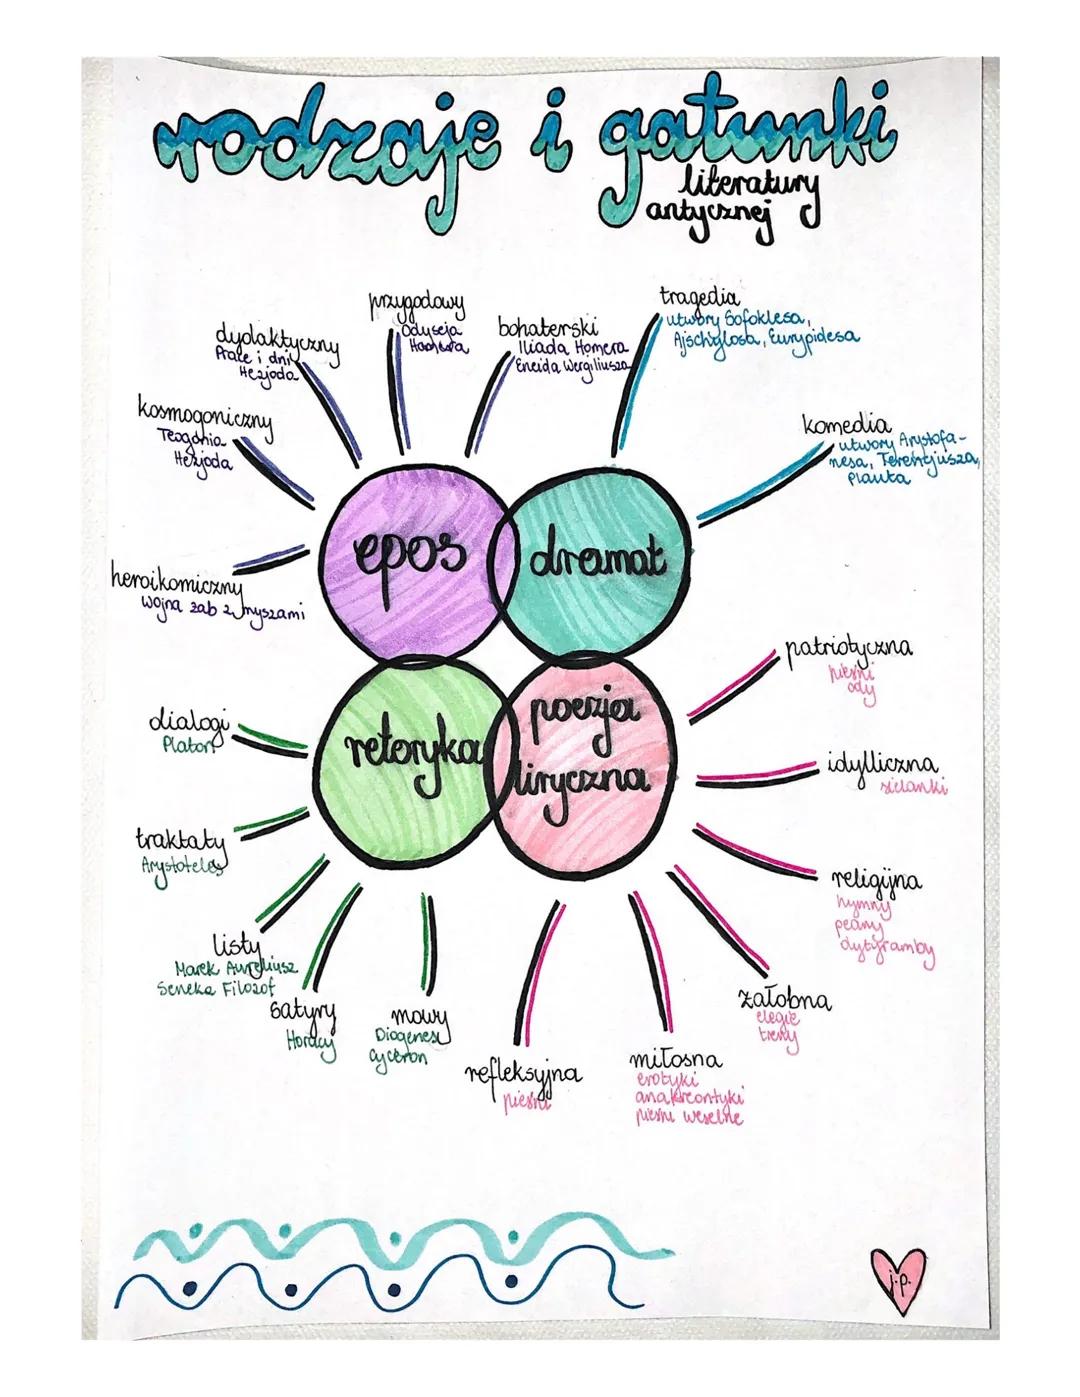 rodzaje i gatunki
literatury
antycznej
przygodowy
Odyseja
Homera
dydaktyczny
Prace i dni
Hezjoda
bohaterski
Iliada Homera
Eneida Wergiliusza
tragedia
utwory Sofoklesa,
Ajschylosa, Eurypidesa
kosmogoniczny
Teogonia
Hezjoda
komedia
utwory Arystofa-
nesa, Terencjusza,
Plauta
heroikomiczny
Wojna żab z myszami
epos
dramat
retoryka
poezja
liryczna
patriotyczna
pieśni
ody
idylliczna
sielanki
religijna
hymny
peany
dytyramby
żałobna
elegie
treny
miłosna
erotyki
anakreontyki
pieśni weselne
refleksyjna
pieśni
dialogi
Platon
traktaty
Arystoteles
listy
Marek Aureliusz
Seneka Filozof
satyry
Horacy
mowy
Diogenes
Cyceron
j.p.